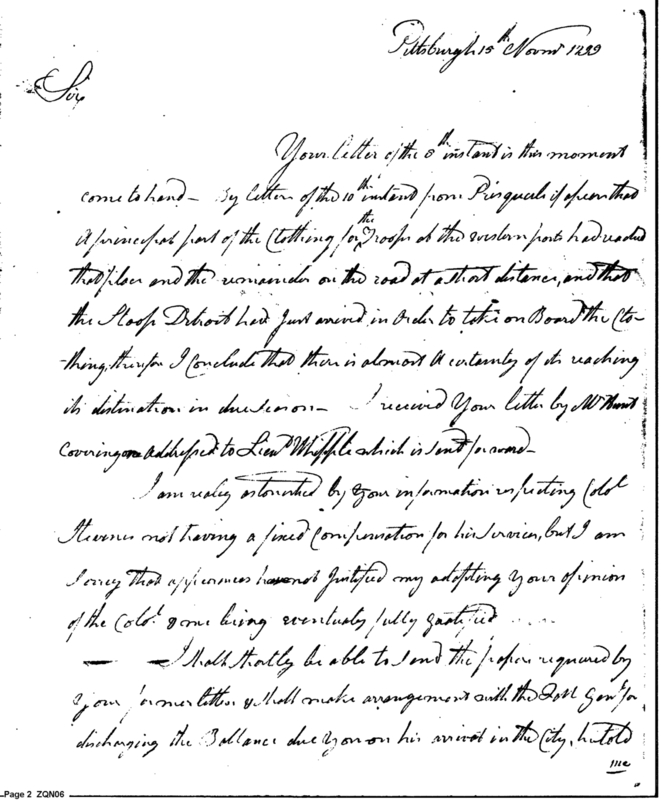 Pittsburgh 15th Novmr 1799
Sir
Your letter of the 8th instant is this moment
come to hand— By letters of the 10th instant from Presquile it apears that
A principal part of the Clothing for the Troops at the western posts had reached
that place and the remainder on the road at a short distance, and that
the Sloop Detroit had Just arrived in order to take on Board the Clo-
-thing, therefore I Conclude that there is almost A certainty of its reaching
its distination in due season— I received Your letter by Mr Hunt
Covering one Addressed to Lieut Whipple which is sent forward—
I am realy astonished by Your information respecting Colol
Stevens not having a fixed Compensation for his Services, but I am
Sorrey that apperances have not Justified my adopting Your opinion
of the Colol & me being eventualy fully gratified .....
— — I shall shortly be able to send the papers required by
Your former letter & shall make arrangement with the Qr M Genl for
discharging the Ballance due You on his arrival in the City, he told
me
Page 2 ZQN06